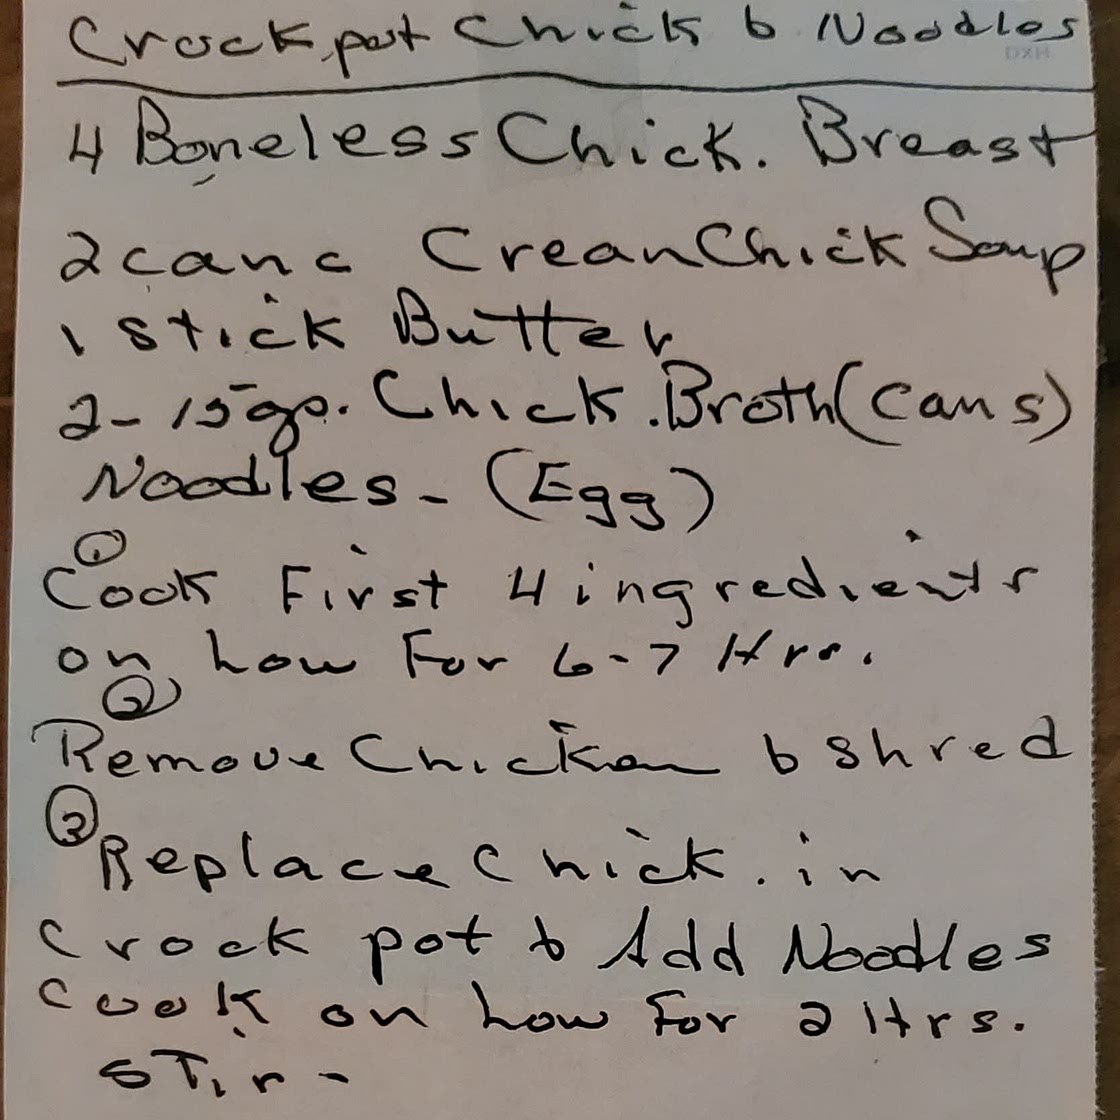 Crockpot Chick & Noodles
DXH
4 Boneless Chick. Breast
2 cans Cream Chick Soup
1 stick Butter
2-15 go. Chick. Broth (cans)
Noodles - (Egg)
①
Cook First 4 ingredients
on Low For 6-7 Hrs.
②
Remove Chicken & Shred
③
Replace Chick. in
Crock pot & Add Noodles
Cook on Low For 2 Hrs.
STir -